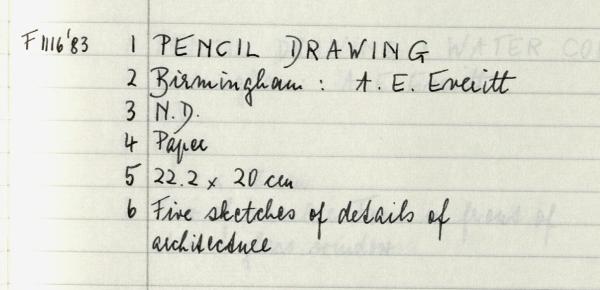 F1116'83 1 PENCIL DRAWING
2 Birmingham : A. E. Everitt
3 N.D.
4 Paper
5 22.2 x 20 cm
6 Five sketches of details of
architecture